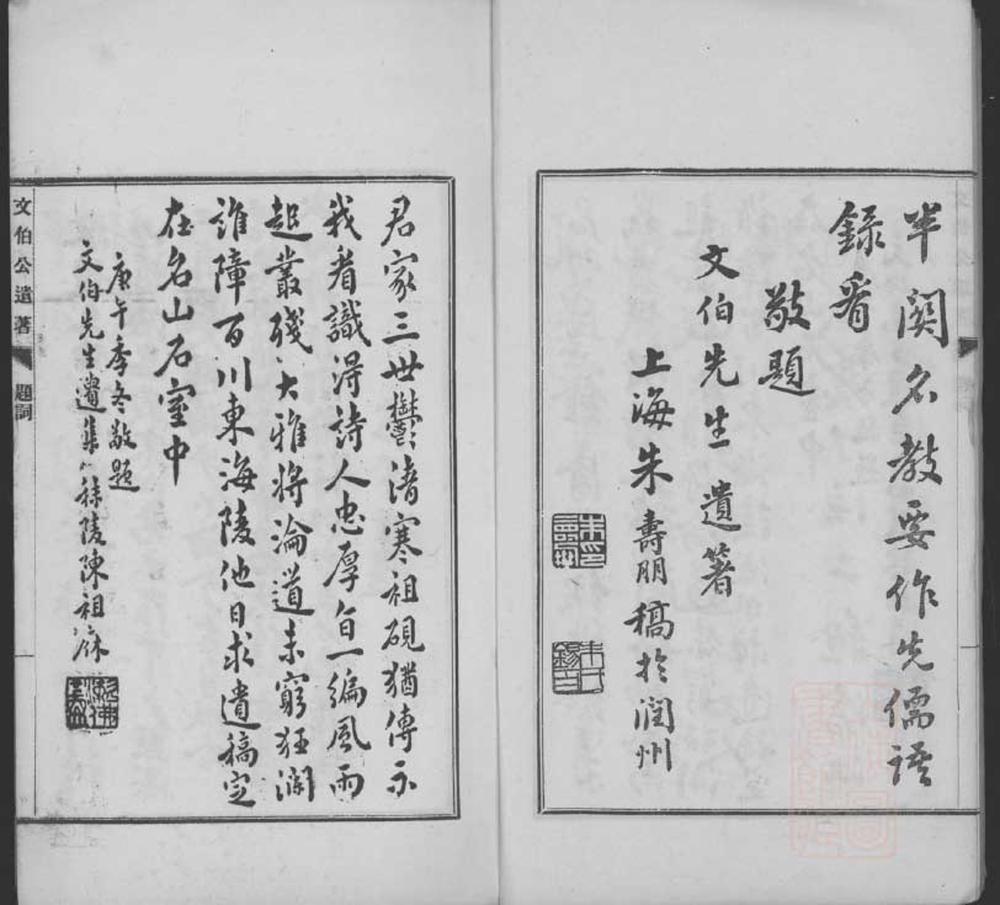 半關名教要作先儒語
録看
敬題
文伯先生遺著
上海朱壽朋稿於潤州
君家三世鬱清寒祖硯猶傳示
我看識得詩人忠厚旨一編風雨
起叢殘大雅將淪道未窮狂瀾
誰障百川東海陵他日求遺稿定
在名山石室中
庚午季冬敬題
文伯先生遺集秣陵陳祖
文伯公遺著
題詞